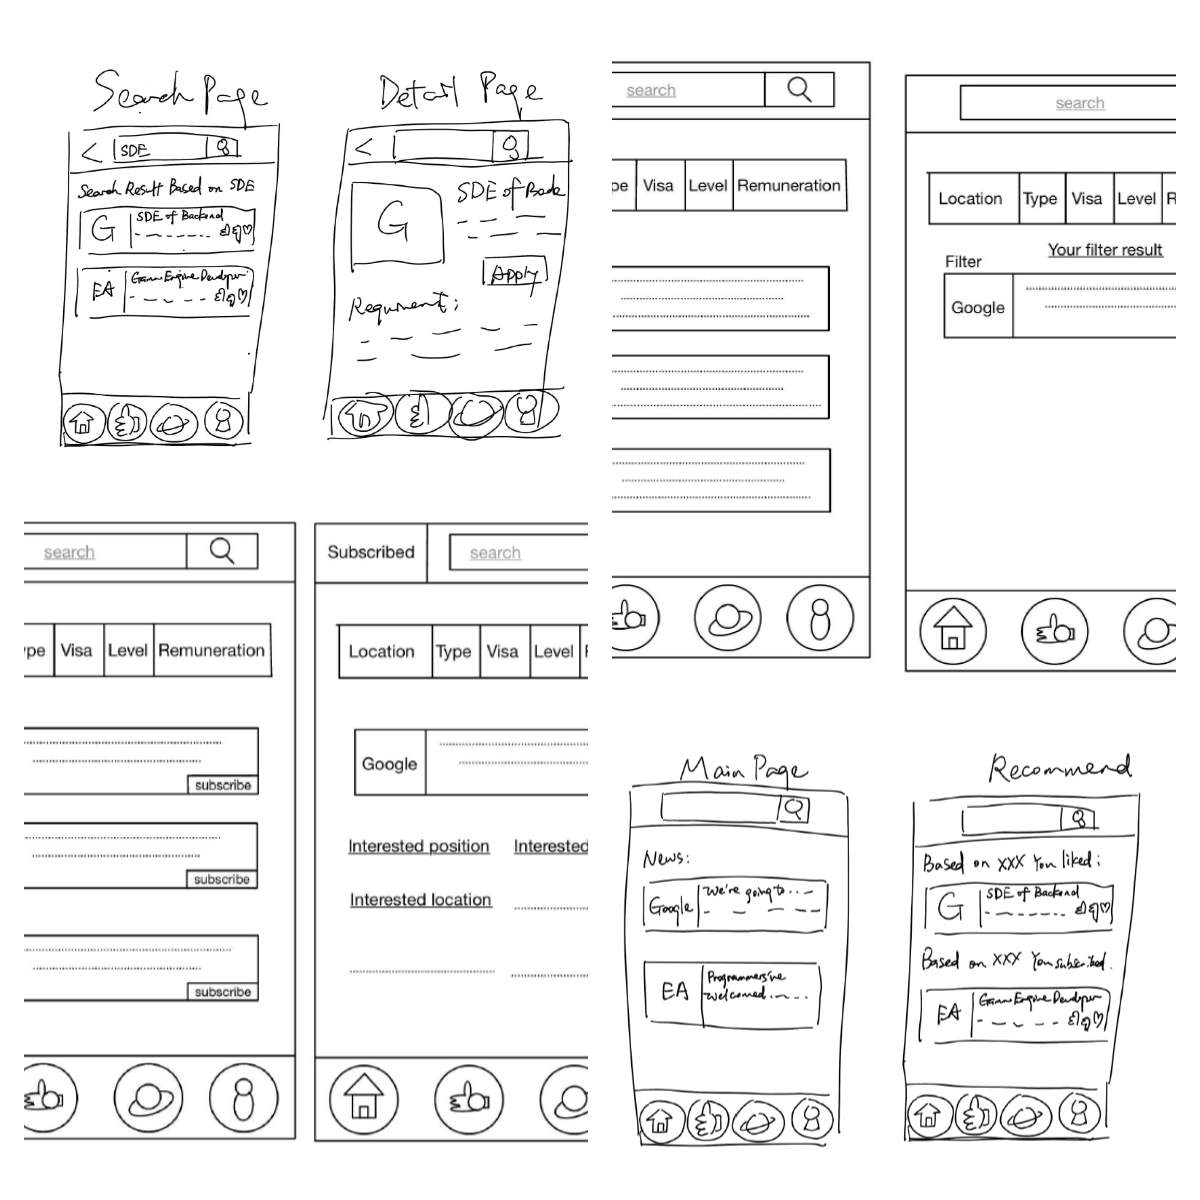 Search Page
SDE
Search Result Based on SDE
G
SDE of Backend
EA
Game Engine Developer
Detail Page
G
SDE of Back
Apply
Requirment:
search
pe Visa Level Remuneration
search
Location Type Visa Level R
Your filter result
Filter
Google
search
pe Visa Level Remuneration
subscribe
subscribe
subscribe
Subscribed
search
Location Type Visa Level
Google
Interested position Interested
Interested location
Main Page
News:
Google
We're going to...
EA
Programmers're
welcomed...
Recommend
Based on XXX You liked:
G
SDE of Backend
Based on XXX You subscribed.
EA
Game Engine Developer